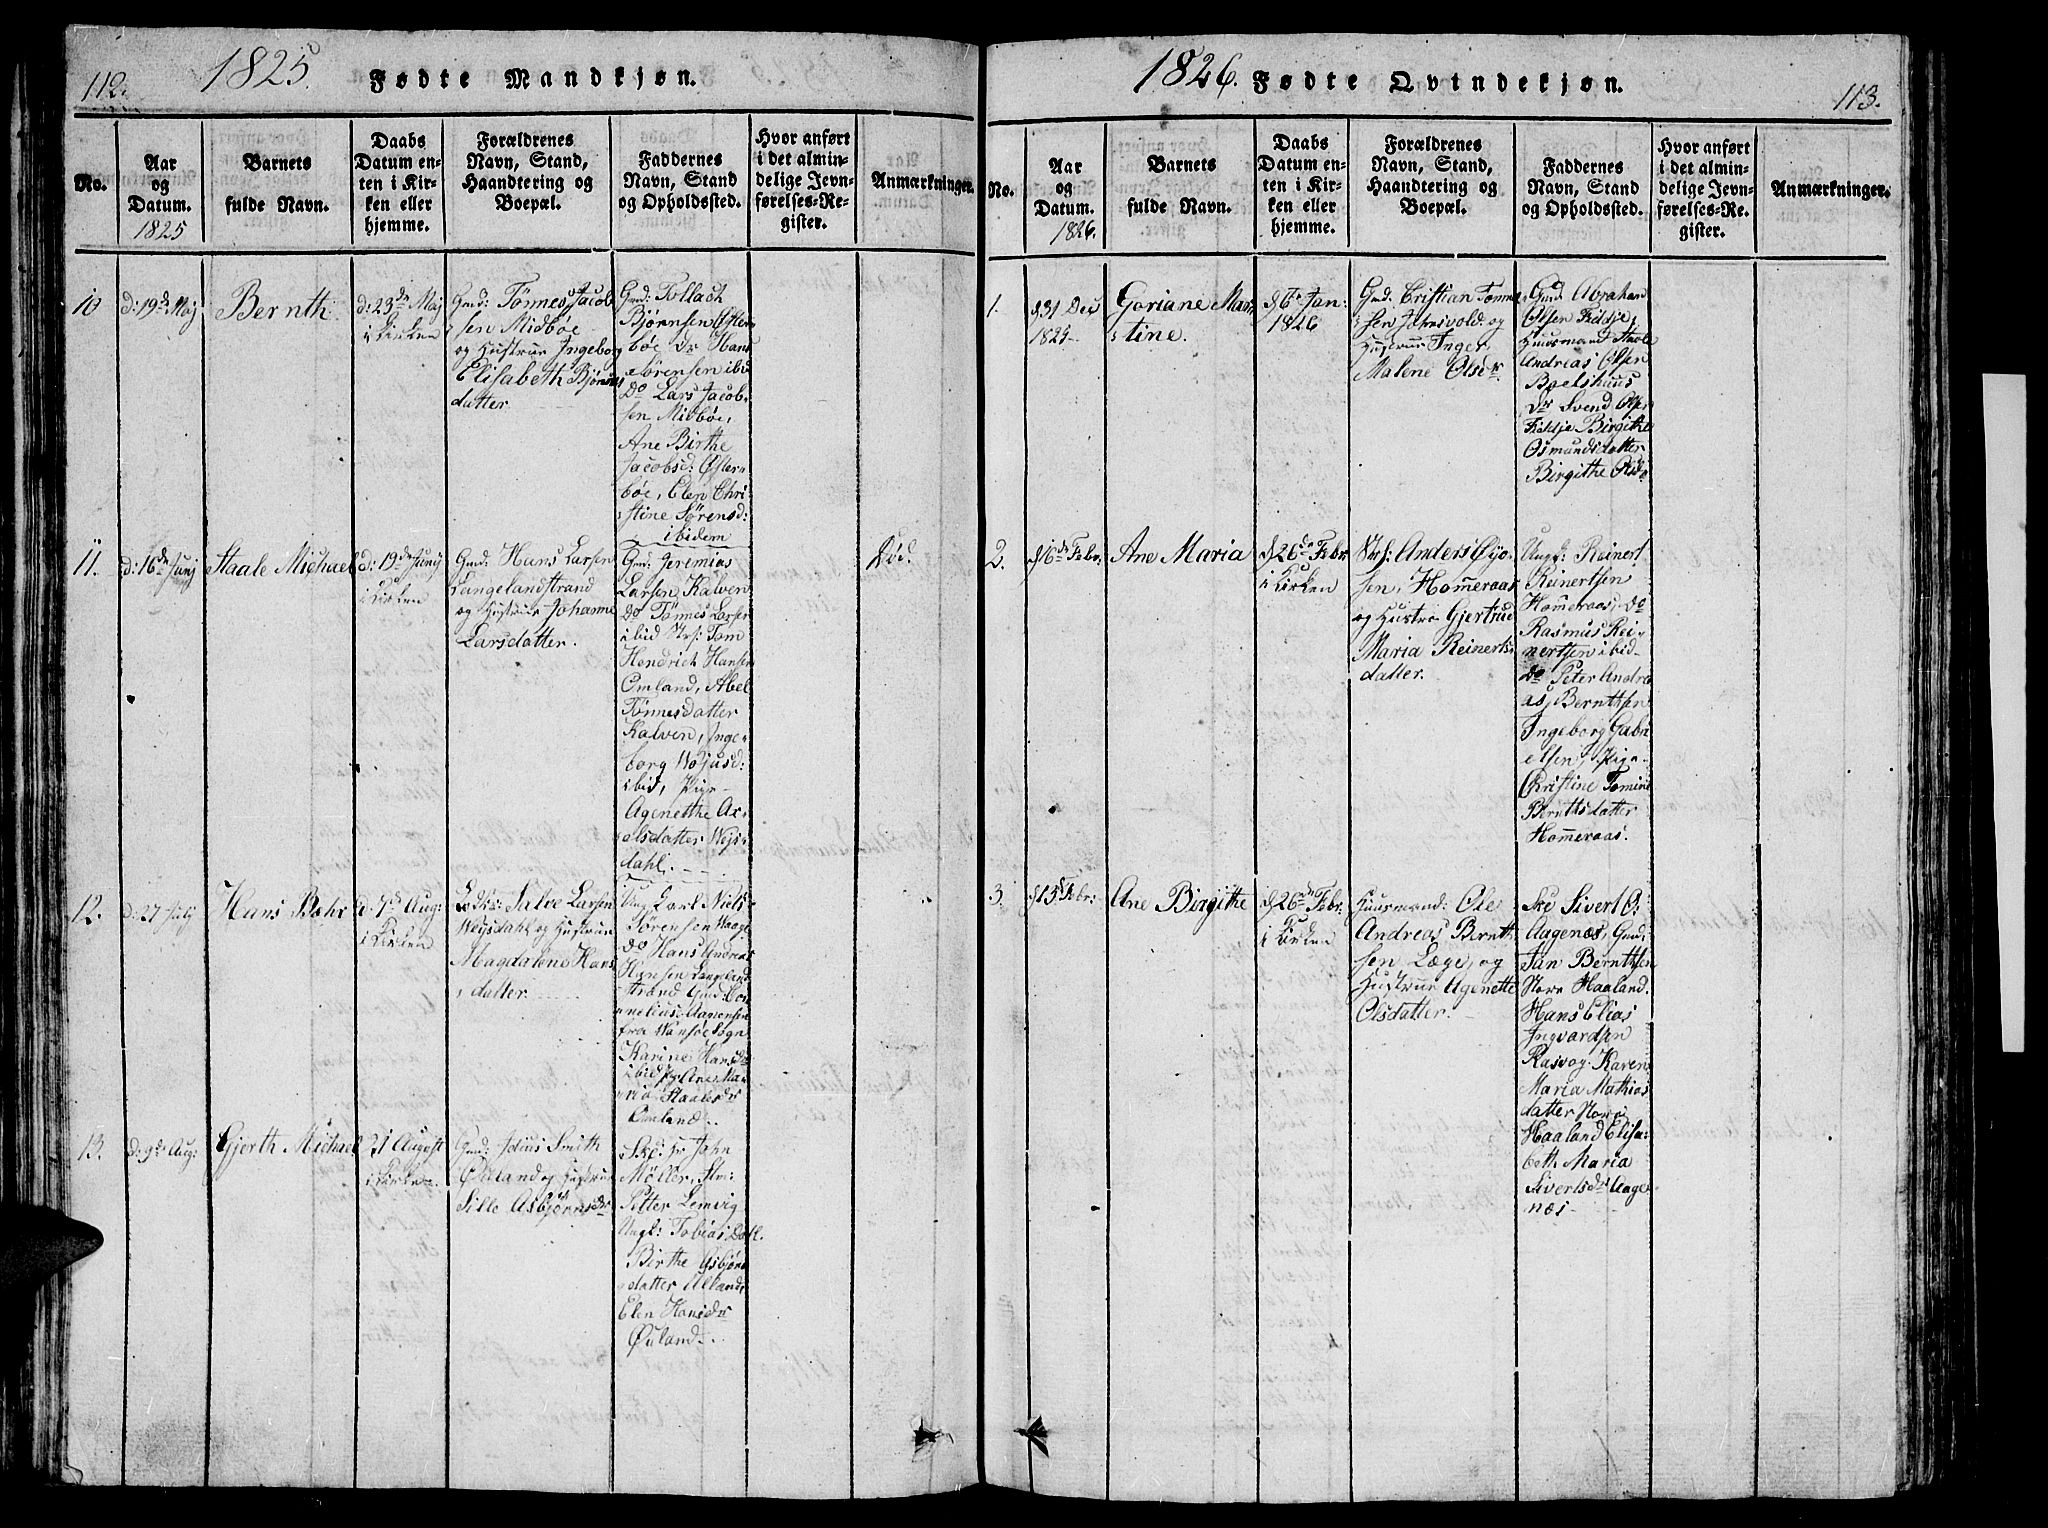 112.
1825.
Fødte Mandkjøn.
No.
Aar
og
Datum.
1825
Barnets
fulde Navn.
Daabs
Datum en-
ten i Kir-
ken eller
hjemme.
Forældrenes
Navn, Stand,
Haandtering og
Boepæl.
Faddernes
Navn, Stand
og Opholdssted.
Hvor anført
i det almin-
delige Jevn-
førelses-Re-
gister.
Anmærkninger.
10
d: 19de Maj
Bernth
d: 23de Maj
i Kirken
Gmd: Tønnes Jacob
sen Midbøe
og Hustrue Ingeborg
Elisabeth Bjørns
datter
Gmd: Tollach
Bjørnsen Øster
bøe Do Hans
Sørensen ibd
Do Lars Jacob-
sen Midbøe,
Ane Birthe
Jacobsd: Øster-
bøe, Elen Chri-
stine Sørensd:
ibidem
11.
d: 16de Junj
Staale Michael
d: 19de Junj
i Kirken
Gmd: Hans Larsen
Langelandstrand
og Hustrue Johanne
Larsdatter.
Gmd: Jeremias
Larsen, Kalven
Do Tønnes Larsen
ibid Str: Tom
Hendrich Hansen
Omland, Abel
Tønnesdatter
Kalven, Inge-
borg
ibid, Pige
Agenethe Ax-
elsdatter Wejs-
dahl.
Død.
12.
d: 27 July
Hans Bohr
d: 7de Aug:
i Kirken
Salve Larsen
Weysdahl og Hustrue
Magdalene Hans
datter.
Ung: Carl Niels
Sørensen Waage
Do Hans Andreas
Hansen Langeland
strand Gmd: Cor
nelius Aanensen
fra Wansøe Sogn
Karine Hansdr
ibid Pge Ane Ma-
ria Staalesdr
Omland.
13.
d: 9de Aug:
Gjerth Michael
21 August
i Kirken.
Gmd: Smith
og Hustrue
Sille Asbjørnsdr
Skl: hr John
Møller,
Pitter Lemvig
Ungk: Tobias
Birthe Asbjørns
datter
Elen Hansdr
Øuland.
1826.
Fødte Qvindekjøn.
113.
No.
Aar
og
Datum.
1826.
Barnets
fulde Navn.
Daabs
Datum en-
ten i Kir-
ken eller
hjemme.
Forældrenes
Navn, Stand,
Haandtering og
Boepæl.
Faddernes
Navn, Stand
og Opholdssted.
Hvor anført
i det almin-
delige Jevn-
førelses-Re-
gister.
Anmærkninger.
1.
d 31 Dec
1825
Goriane Mar
tine.
d 6te Jan:
1826
Gmd: Cristian Tønne
sen og
Hustrue Inger
Malene Olsdr.
Gmd: Abraham
Olsen Kildje,
Huusmand Staale
Andreas Olsen
Boelshuus
Do Svend Olsen
Kildje Birgithe
Osmundsdatter
Birgithe Olsdr
2.
d 6de Febr:
Ane Maria
d 26de Febr
i Kirken
Str: Anders Øyo
sen, Homeraas
og Hustru Gjertrud
Maria Reinerts-
datter.
Ungk: Reinert
Reinertsen
Homeraas, Do
Rasmus Rei-
nertsen ibid
Do Peter Andre
as Berntsen
Ingeborg Gabri
elsen, Pige
Christine Tomine
Berntsdatter
Homeraas.
3.
d 15 Febr:
Ane Birgithe
d 26de Febr:
i Kirken
Huusmand: Ole
Andreas Bernt
sen Læge, og
Hustrue Agenette
Olsdatter.
Skr Sivert O:
Aagenæs, Gmd:
Jan Berntsen
Haaland.
Hans Elias
Ingvardsen
Rasvog Karen
Maria Mathias
datter
Haaland Elisa-
beth Maria
Sivertsdr Aage
næs